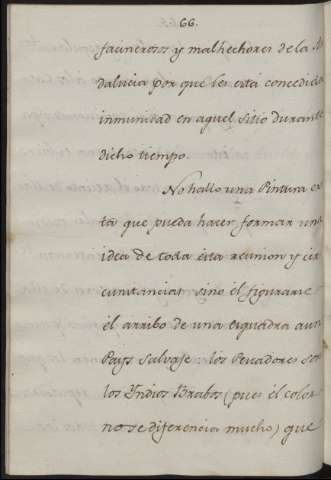 66.
faunerosos y malhechores de la An
dalucia por que les está concedida
inmunidad en aquel sitio durante
dicho tiempo.
No hallo una Pintura ex
ta que pueda hacer formar una
idea de toda esta reunion y cir
cunstancias, sino él figurarse
él arribo de una esquadra a un
Pays Salvaje: los Pescadores son
los Yndios Brabos (pues él color
no se diferencia mucho) que